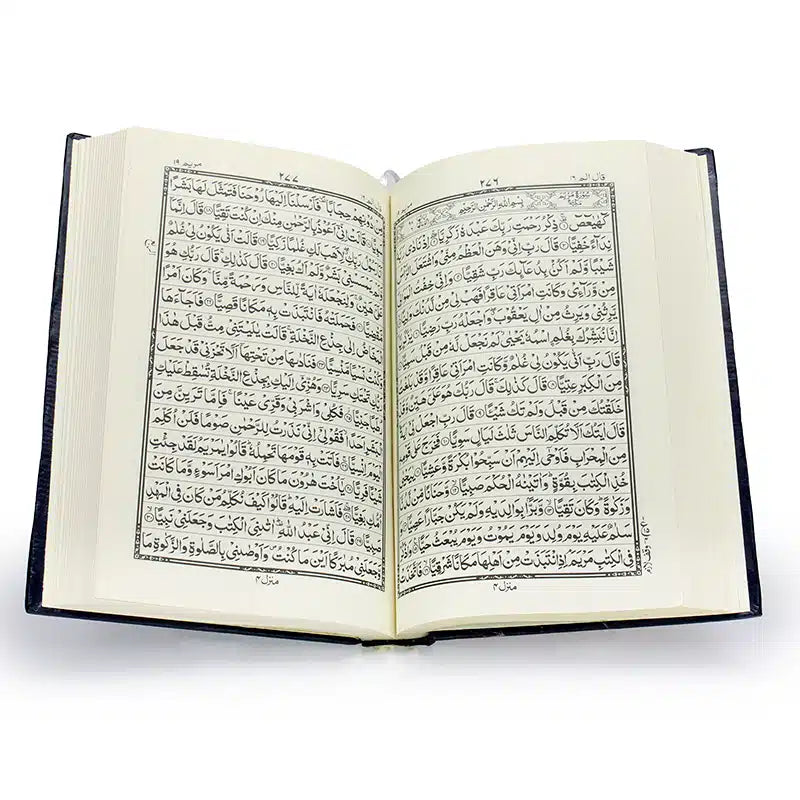 قال الم ١٦ ٢٧٦
بِسْمِ اللهِ الرَّحْمٰنِ الرَّحِيْمِ
كٓهٰيٰعٓصٓ ۝ ذِكْرُ رَحْمَتِ رَبِّكَ عَبْدَهٗ زَكَرِيَّا ۝ اِذْ نَادٰى رَبَّهٗ
نِدَآءً خَفِيًّا ۝ قَالَ رَبِّ اِنِّيْ وَهَنَ الْعَظْمُ مِنِّيْ وَاشْتَعَلَ الرَّاْسُ
شَيْبًا وَّلَمْ اَكُنْۢ بِدُعَآئِكَ رَبِّ شَقِيًّا ۝ وَاِنِّيْ خِفْتُ الْمَوَالِيَ
مِنْ وَّرَآءِيْ وَكَانَتِ امْرَاَتِيْ عَاقِرًا فَهَبْ لِيْ مِنْ لَّدُنْكَ وَلِيًّا
يَّرِثُنِيْ وَيَرِثُ مِنْ اٰلِ يَعْقُوْبَ وَاجْعَلْهُ رَبِّ رَضِيًّا ۝
اِنَّا نُبَشِّرُكَ بِغُلٰمِ ۨاسْمُهٗ يَحْيٰى لَمْ نَجْعَلْ لَّهٗ مِنْ قَبْلُ سَمِيًّا ۝
قَالَ رَبِّ اَنّٰى يَكُوْنُ لِيْ غُلٰمٌ وَّكَانَتِ امْرَاَتِيْ عَاقِرًا وَّقَدْ بَلَغْتُ
مِنَ الْكِبَرِ عِتِيًّا ۝ قَالَ كَذٰلِكَ قَالَ رَبُّكَ هُوَ عَلَيَّ هَيِّنٌ وَّقَدْ
خَلَقْتُكَ مِنْ قَبْلُ وَلَمْ تَكُ شَيْئًا ۝ قَالَ رَبِّ اجْعَلْ لِّيْ اٰيَةً
قَالَ اٰيَتُكَ اَلَّا تُكَلِّمَ النَّاسَ ثَلٰثَ لَيَالٍ سَوِيًّا ۝ فَخَرَجَ عَلٰى قَوْمِهٖ
مِنَ الْمِحْرَابِ فَاَوْحٰى اِلَيْهِمْ اَنْ سَبِّحُوْا بُكْرَةً وَّعَشِيًّا ۝
خُذِ الْكِتٰبَ بِقُوَّةٍ وَاٰتَيْنٰهُ الْحُكْمَ صَبِيًّا ۝ وَّحَنَانًا مِّنْ لَّدُنَّا
وَزَكٰوةً وَكَانَ تَقِيًّا ۝ وَّبَرًّۢا بِوَالِدَيْهِ وَلَمْ يَكُنْ جَبَّارًا عَصِيًّا ۝
سَلٰمٌ عَلَيْهِ يَوْمَ وُلِدَ وَيَوْمَ يَمُوْتُ وَيَوْمَ يُبْعَثُ حَيًّا ۝ وَاذْكُرْ
فِي الْكِتٰبِ مَرْيَمَ اِذِ انْتَبَذَتْ مِنْ اَهْلِهَا مَكَانًا شَرْقِيًّا ۝ فَاتَّخَذَتْ
منزل ۴
٢٧٧ مريم ١٩
حِجَابًا فَاَرْسَلْنَآ اِلَيْهَا رُوْحَنَا فَتَمَثَّلَ لَهَا بَشَرًا
قَالَتْ اِنِّيْ اَعُوْذُ بِالرَّحْمٰنِ مِنْكَ اِنْ كُنْتَ تَقِيًّا ۝ قَالَ اِنَّمَآ
رَسُوْلُ رَبِّكِ لِاَهَبَ لَكِ غُلٰمًا زَكِيًّا ۝ قَالَتْ اَنّٰى يَكُوْنُ لِيْ غُلٰمٌ
يَمْسَسْنِيْ بَشَرٌ وَّلَمْ اَكُ بَغِيًّا ۝ قَالَ كَذٰلِكِ قَالَ رَبُّكِ هُوَ
هَيِّنٌ وَلِنَجْعَلَهٗٓ اٰيَةً لِّلنَّاسِ وَرَحْمَةً مِّنَّا وَكَانَ اَمْرًا
فَحَمَلَتْهُ فَانْتَبَذَتْ بِهٖ مَكَانًا قَصِيًّا ۝ فَاَجَآءَهَا
الْمَخَاضُ اِلٰى جِذْعِ النَّخْلَةِ قَالَتْ يٰلَيْتَنِيْ مِتُّ قَبْلَ هٰذَا
وَكُنْتُ نَسْيًا مَّنْسِيًّا ۝ فَنَادٰىهَا مِنْ تَحْتِهَآ اَلَّا تَحْزَنِيْ قَدْ جَعَلَ
تَحْتَكِ سَرِيًّا ۝ وَهُزِّيْٓ اِلَيْكِ بِجِذْعِ النَّخْلَةِ تُسٰقِطْ عَلَيْكِ
جَنِيًّا ۝ فَكُلِيْ وَاشْرَبِيْ وَقَرِّيْ عَيْنًا فَاِمَّا تَرَيِنَّ مِنَ
الْبَشَرِ اَحَدًا فَقُوْلِيْٓ اِنِّيْ نَذَرْتُ لِلرَّحْمٰنِ صَوْمًا فَلَنْ اُكَلِّمَ
الْيَوْمَ اِنْسِيًّا ۝ فَاَتَتْ بِهٖ قَوْمَهَا تَحْمِلُهٗ قَالُوْا يٰمَرْيَمُ لَقَدْ جِئْتِ
شَيْئًا فَرِيًّا ۝ يٰٓاُخْتَ هٰرُوْنَ مَا كَانَ اَبُوْكِ امْرَاَ سَوْءٍ وَّمَا كَانَتْ
اُمُّكِ بَغِيًّا ۝ فَاَشَارَتْ اِلَيْهِ قَالُوْا كَيْفَ نُكَلِّمُ مَنْ كَانَ فِي الْمَهْدِ
صَبِيًّا ۝ قَالَ اِنِّيْ عَبْدُ اللهِ اٰتٰىنِيَ الْكِتٰبَ وَجَعَلَنِيْ نَبِيًّا ۝
وَّجَعَلَنِيْ مُبٰرَكًا اَيْنَ مَا كُنْتُ وَاَوْصٰنِيْ بِالصَّلٰوةِ وَالزَّكٰوةِ مَا
منزل ۴